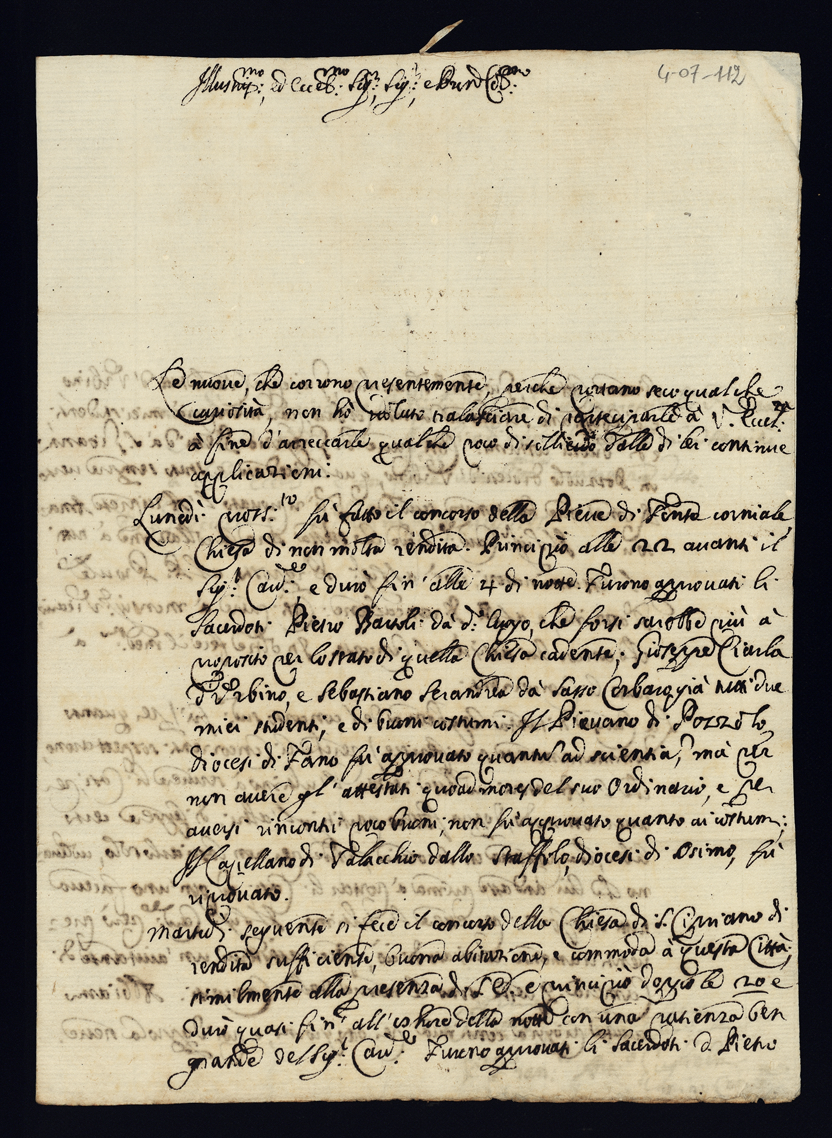 4-07-112
Illustr:mo ed Ecc:mo Sig:r, Sig:r, e Pron Col:mo
Le nuove, che corrono presentemente, perche portano seco qualche
curiosità, non hò voluto tralasciare di parteciparle à V. Ecc:za
à fine d'arreccarle qualche poco di sollievo dalle di lei continue
applicazioni:
Lunedì pross:to fù fatto il concorso della Pieve di Fonte corniale
Chiesa di non molta rendita. Principiò alle 22 avanti il
Sig:r Card:le, e durò fin' alle 4 di notte. Furono approvati li
Sacerdoti Pietro Bartoli da che forsi sarebbe più à
proposito per lo stato di quella Chiesa cadente; Giuseppe Ciarla
d'Urbino, e Sebastiano Serandrea da Sasso Corbaro già tutti due
miei studenti, e di buoni costumi. Il Pievano di Pozzolo
diocesi di Fano fù approvato quantũ ad scientia, mà per
non avere gl' attestati quoad mores del suo Ordinario, e per
aversi rincontri poco buoni, non fù approvato quanto ai costumi;
Il Capellano di Talacchio dallo Staffolo, diocesi di Osimo, fù
riprovato.
Martedì seguente si fece il concorso della Chiesa di S. Cipriano di
rendita sufficiente, buona abitazione, e commoda à questa Città,
similmente alla presenza di S. E. e principiò doppo le 20 e
durò quasi fin' all' hore della notte con una patienza ben
grande del Sig:r Card:le. Furono approvati li Sacerdoti D. Pietro